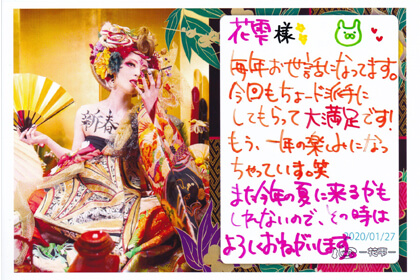 花雫様
毎年お世話になってます。
今回もちょード派手に
してもらって大満足です!
もう、一年の楽しみになっ
ちゃっています。笑
また今年の夏に来るかも
しれないので、その時は
よろしくおねがいします
2020/01/27
－花雫－
新春